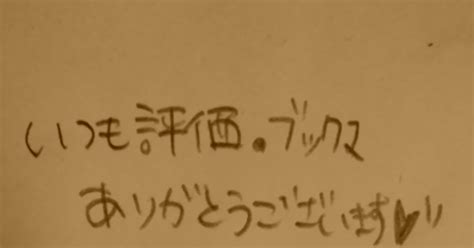 いつも評価。ブックマ
ありがとうございます♥